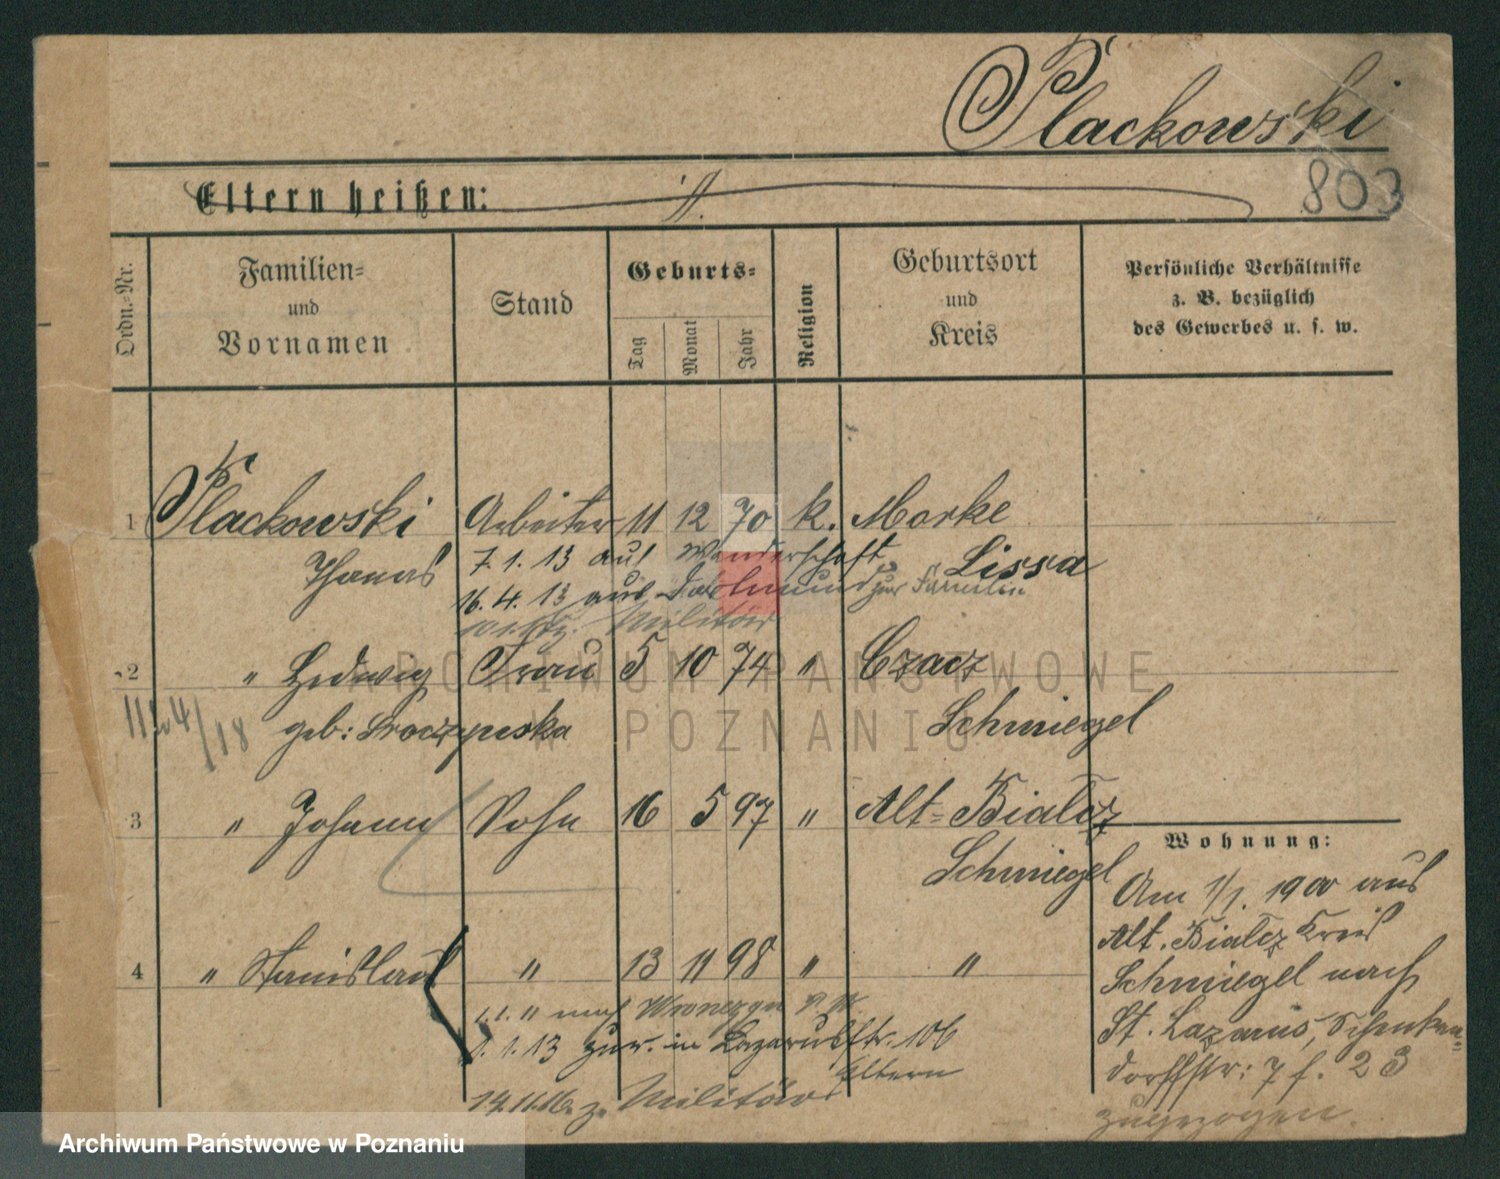 Plackowski
803
Eltern heißen:
Ordn.-Nr.
Familien-
und
Vornamen
Stand
Geburts-
Tag
Monat
Jahr
Religion
Geburtsort
und
Kreis
Persönliche Verhältnisse
z. B. bezüglich
des Gewerbes u. s. w.
1 Plackowski Arbeiter 11 12 70 k. Morke
Thomas 7. 1. 13 auf Wanderschaft Lissa
16. 4. 13 aus Dortmund zur Familie
Militär
2 " Hedwig Frau 5 10 74 " Czacz
geb: Schmiegel
3 " Johann Sohn 16 5 97 " Alt-Bialcz
Schmiegel
4 " Stanislaus " 13 11 98 " "
1. 1. 11 nach
1. 13 zur. in Lazarusstr. 106
Eltern
14.11.16 z. Militär
Wohnung:
Am 1/1. 1900 aus
Alt. Bialcz Kreis
Schmiegel nach
St. Lazarus, Schenken-
dorffstr: 7 f. 23
zugezogen.
ARCHIWUM PAŃSTWOWE
W POZNANIU
Archiwum Państwowe w Poznaniu